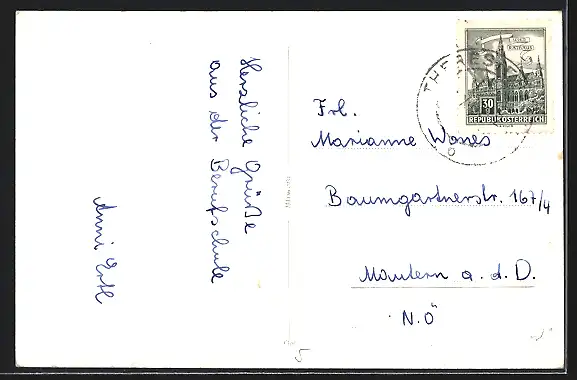 Herzliche Grüße
aus der Berufschule
Anni Ertl
WIEN
RATHAUS
30
REPUBLIK ÖSTERREICH
THERES
6
Frl.
Marianne Wones
Baumgartnerstr. 167/4
Mautern a. d. D.
N.Ö
5